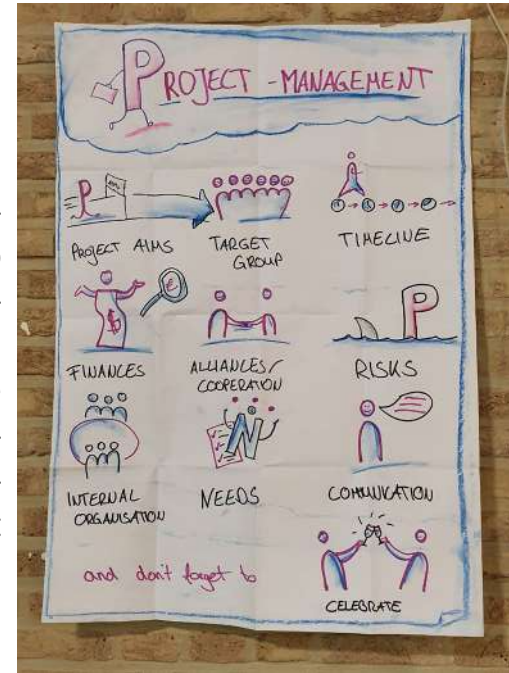 PROJECT - MANAGEMENT
PROJECT AIMS
TARGET
GROUP
TIMELINE
FINANCES
ALLIANCES/
COOPERATION
RISKS
INTERNAL
ORGANISATION
NEEDS
COMMUNICATION
and don't forget to
CELEBRATE